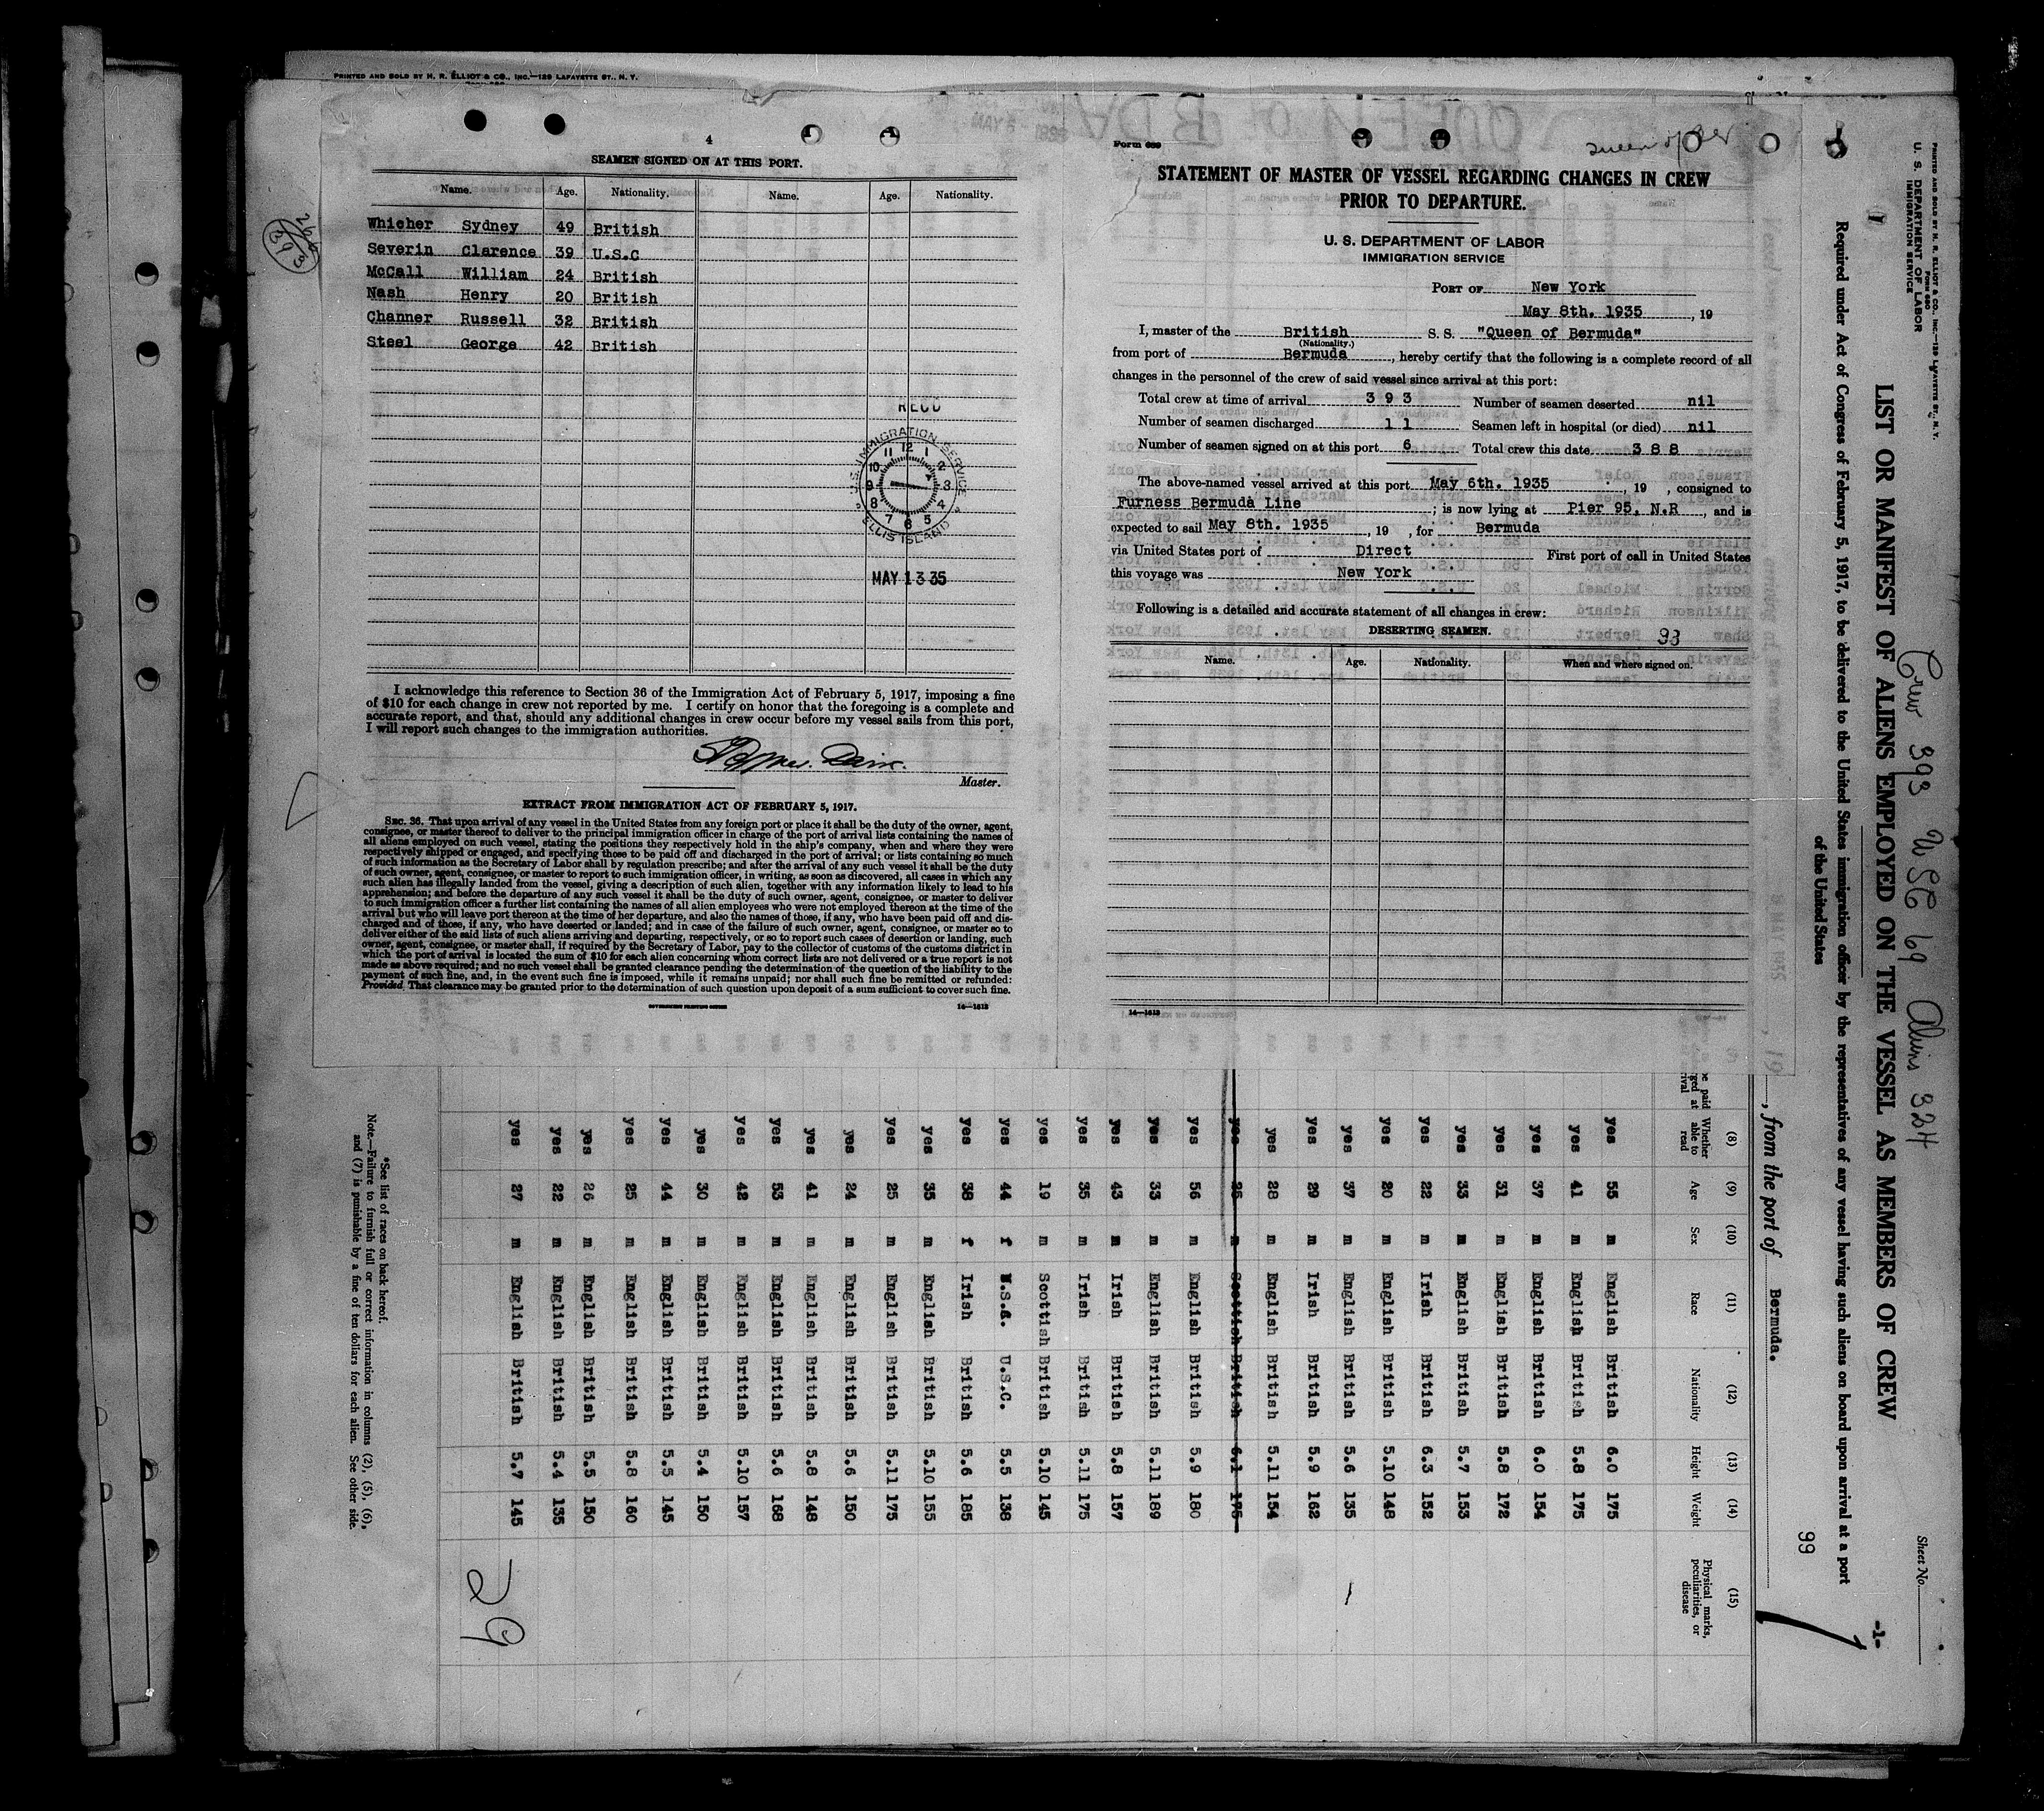 PRINTED AND SOLD BY H. R. ELLIOT & CO., INC.—129 LAFAYETTE ST., N. Y.
4
SEAMEN SIGNED ON AT THIS PORT.
Name. Age. Nationality. Name. Age. Nationality.
Whicher Sydney 49 British
Severin Clarence 39 U.S.C
McCall William 24 British
Nash Henry 20 British
Channer Russell 32 British
Steel George 42 British
RECD
U.S. IMMIGRATION SERVICE
ELLIS ISLAND
12 1 2 3 4 5 6 7 8 9 10 11
MAY 13 35
I acknowledge this reference to Section 36 of the Immigration Act of February 5, 1917, imposing a fine
of $10 for each change in crew not reported by me. I certify on honor that the foregoing is a complete and
accurate report, and that, should any additional changes in crew occur before my vessel sails from this port,
I will report such changes to the immigration authorities.
Master.
EXTRACT FROM IMMIGRATION ACT OF FEBRUARY 5, 1917.
SEC. 36. That upon arrival of any vessel in the United States from any foreign port or place it shall be the duty of the owner, agent,
consignee, or master thereof to deliver to the principal immigration officer in charge of the port of arrival lists containing the names of
all aliens employed on such vessel, stating the positions they respectively hold in the ship's company, when and where they were
respectively shipped or engaged, and specifying those to be paid off and discharged in the port of arrival; or lists containing so much
of such information as the Secretary of Labor shall by regulation prescribe; and after the arrival of any such vessel it shall be the duty
of such owner, agent, consignee, or master to report to such immigration officer, in writing, as soon as discovered, all cases in which any
such alien has illegally landed from the vessel, giving a description of such alien, together with any information likely to lead to his
apprehension; and before the departure of any such vessel it shall be the duty of such owner, agent, consignee, or master to deliver
to such immigration officer a further list containing the names of all alien employees who were not employed thereon at the time of the
arrival but who will leave port thereon at the time of her departure, and also the names of those, if any, who have been paid off and dis-
charged and of those, if any, who have deserted or landed; and in case of the failure of such owner, agent, consignee, or master so to
deliver either of the said lists of such aliens arriving and departing, respectively, or so to report such cases of desertion or landing, such
owner, agent, consignee, or master shall, if required by the Secretary of Labor, pay to the collector of customs of the customs district in
which the port of arrival is located the sum of $10 for each alien concerning whom correct lists are not delivered or a true report is not
made as above required; and no such vessel shall be granted clearance pending the determination of the question of the liability to the
payment of such fine, and, in the event such fine is imposed, while it remains unpaid; nor shall such fine be remitted or refunded:
Provided, That clearance may be granted prior to the determination of such question upon deposit of a sum sufficient to cover such fine.
GOVERNMENT PRINTING OFFICE 14—1613
Form 689
Queen of Ber
STATEMENT OF MASTER OF VESSEL REGARDING CHANGES IN CREW
PRIOR TO DEPARTURE.
U. S. DEPARTMENT OF LABOR
IMMIGRATION SERVICE
PORT OF New York
May 8th. 1935, 19
I, master of the British S. S. "Queen of Bermuda"
(Nationality.)
from port of Bermuda, hereby certify that the following is a complete record of all
changes in the personnel of the crew of said vessel since arrival at this port:
Total crew at time of arrival 3 9 3 Number of seamen deserted nil
Number of seamen discharged 1 1 Seamen left in hospital (or died) nil
Number of seamen signed on at this port 6 Total crew this date 3 8 8
The above-named vessel arrived at this port May 6th. 1935, 19 , consigned to
Furness Bermuda Line ; is now lying at Pier 95. N.R , and is
expected to sail May 8th. 1935, 19 , for Bermuda
via United States port of Direct First port of call in United States
this voyage was New York
Following is a detailed and accurate statement of all changes in crew:
DESERTING SEAMEN. 93
Name. Age. Nationality. When and where signed on.
14—1613
PRINTED AND SOLD BY H. R. ELLIOT & CO., INC.—129 LAFAYETTE ST., N. Y.
Form 680
U. S. DEPARTMENT OF LABOR
IMMIGRATION SERVICE
Sheet No.
-1-
Crew 393 USC 69 Aliens 324
LIST OR MANIFEST OF ALIENS EMPLOYED ON THE VESSEL AS MEMBERS OF CREW
Required under Act of Congress of February 5, 1917, to be delivered to the United States immigration officer by the representatives of any vessel having such aliens on board upon arrival at a port
of the United States
99
, 19 , from the port of Bermuda.
(8) (9) (10) (11) (12) (13) (14) (15)
Whether able to read Age Sex Race Nationality Height Weight Physical marks, peculiarities, or disease
yes 55 m English British 6.0 175
yes 41 m English British 5.8 175
yes 37 m English British 6.0 154
yes 31 m English British 5.8 172
yes 33 m English British 5.7 153
yes 22 m Irish British 6.3 152
yes 20 m English British 5.10 148
yes 37 m English British 5.6 135
yes 29 m Irish British 5.9 162
yes 28 m English British 5.11 154
yes 25 m Scottish British 6.1 175
yes 56 m English British 5.9 180
yes 33 m English British 5.11 189
yes 43 m Irish British 5.8 157
yes 35 m Irish British 5.11 175
yes 19 m Scottish British 5.10 145
yes 44 f U.S.C. U.S.C. 5.5 138
yes 38 f Irish British 5.6 185
yes 35 m English British 5.10 155
yes 25 m English British 5.11 175
yes 24 m English British 5.6 150
yes 41 m English British 5.8 148
yes 53 m English British 5.6 168
yes 42 m English British 5.10 157
yes 30 m English British 5.4 150
yes 44 m English British 5.5 145
yes 25 m English British 5.8 160
yes 26 m English British 5.5 150
yes 22 m English British 5.4 135
yes 27 m English British 5.7 145
29
*See list of races on back hereof.
Note.—Failure to furnish full or correct information in columns (2), (5), (6),
and (7) is punishable by a fine of ten dollars for each alien. See other side.